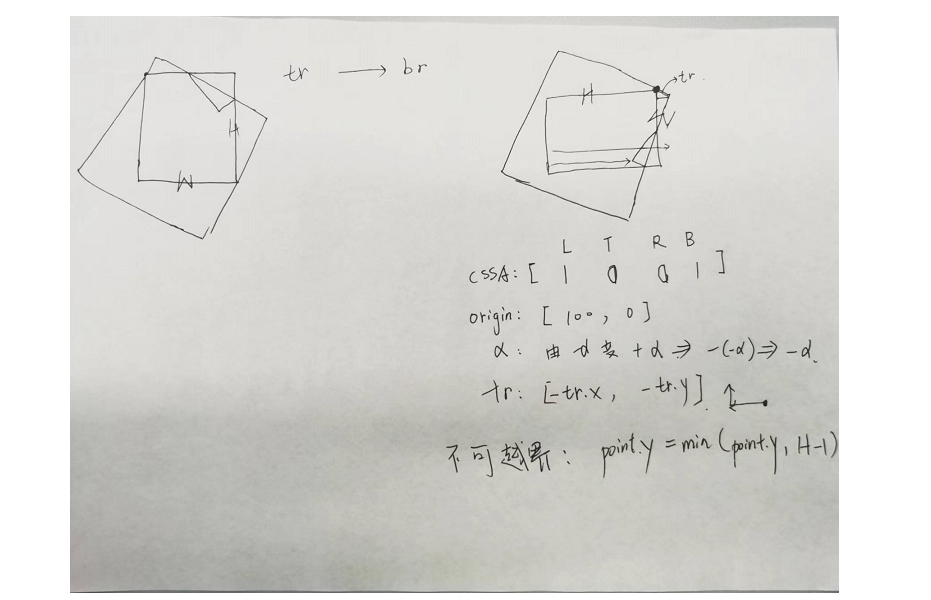 tr → br
H
W
tr.
H
W
L T R B
cssA: [ 1 0 0 1 ]
origin: [ 100 , 0 ]
α: 由 α 变 +α ⇒ -(-α) ⇒ -α.
tr: [-tr.x , -tr.y].
不可越界: point.y = min (point.y, H-1)